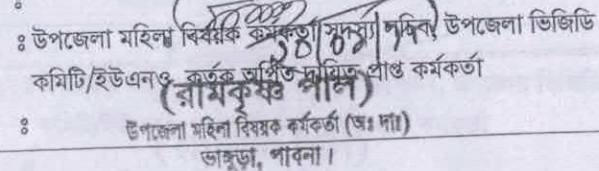 ঃ উপজেলা মহিলা বিষয়ক কর্মকর্তা/সদস্য সচিব, উপজেলা ভিজিডি
কমিটি/ইউএনও কর্তৃক অর্পিত দায়িত্ব প্রাপ্ত কর্মকর্তা
(রামকৃষ্ণ পাল)
ঃ উপজেলা মহিলা বিষয়ক কর্মকর্তা (অঃ দাঃ)
ভাঙ্গুড়া, পাবনা।